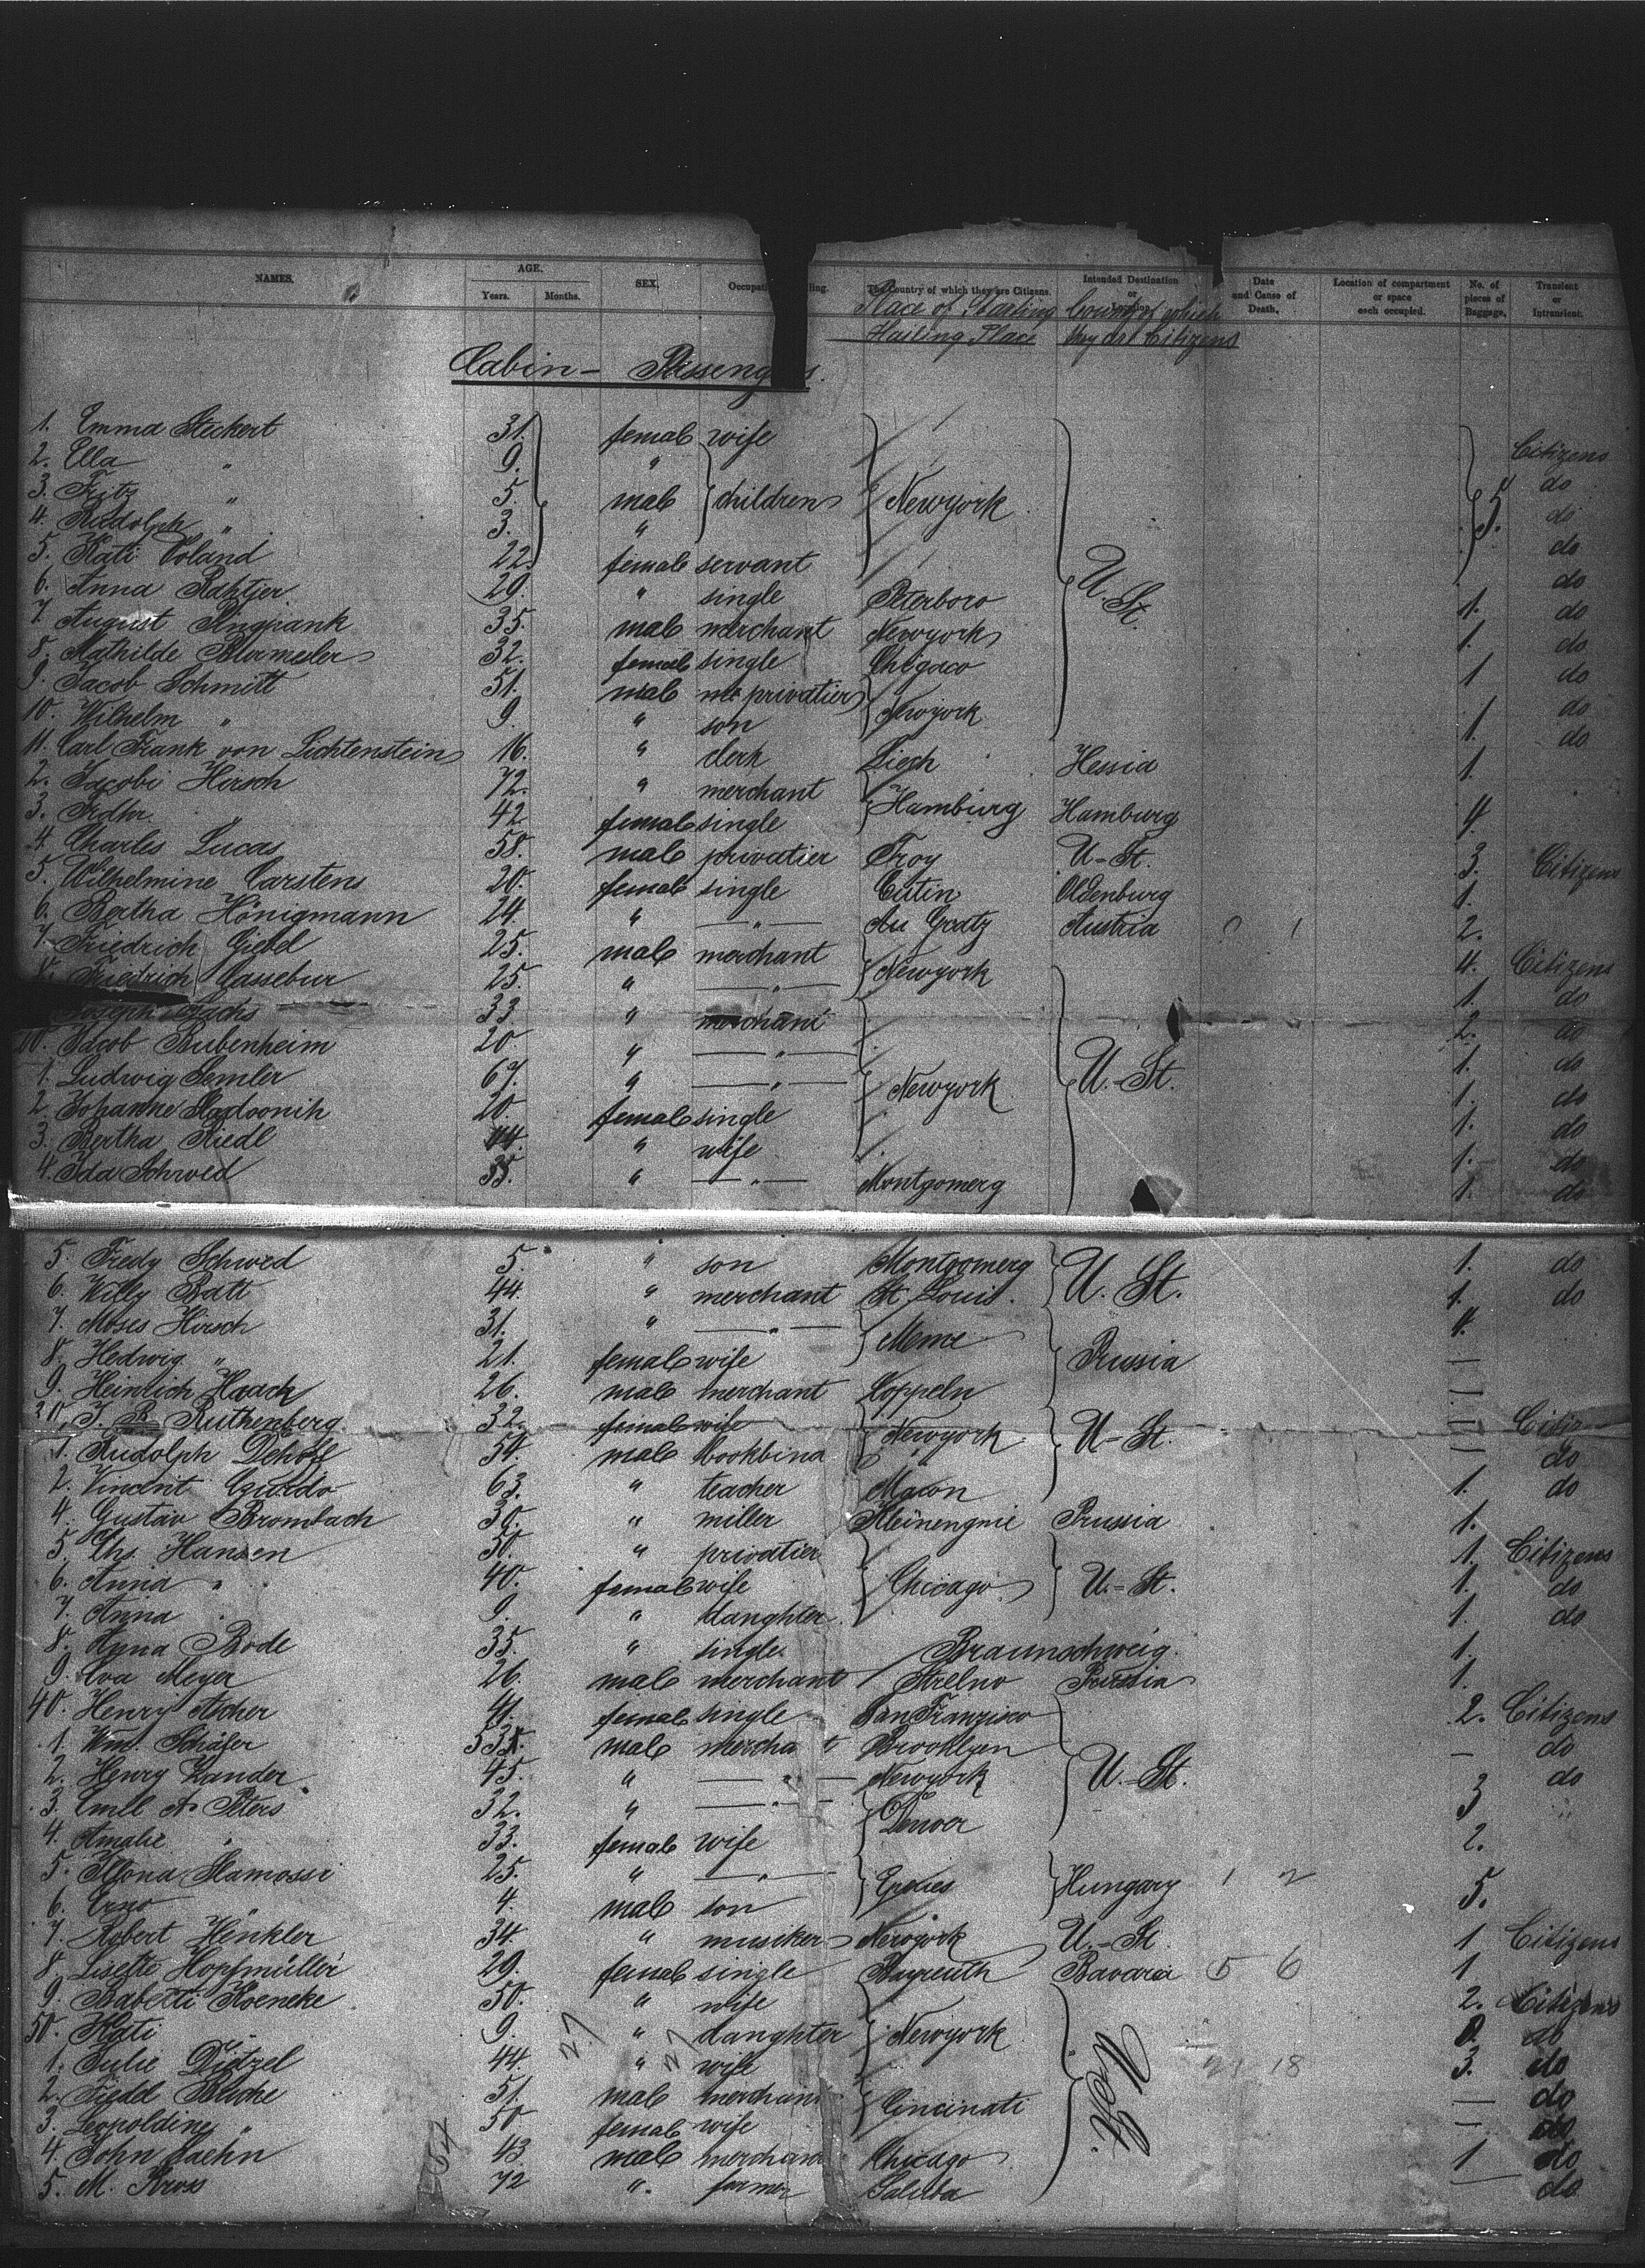 NAMES. AGE. Years. Months. SEX. The Country of which they are Citizens. Intended Destination or Location Date and Cause of Death. Location of compartment or space each occupied. No. of pieces of Baggage. Transient or Intransient.
Place of Starting Country of which
Hailing Place they are Citizens
Cabin - Passeng s.
1. Emma Steckert 31. female wife Citizens
2. Ella " 9. " do
3. Fritz " 5. male children Newyork 5. do
4. Rudolph " 3. " do
5. Kati Voland 22. female servant U. St. do
6. Anna Rahtjer 29. " single Peterboro 1. do
7. August 35. male merchant Newyork 1. do
8. Mathilde 32. female single Chigaco 1 do
9. Jacob Schmitt 51. male privatier Newyork do
10. Wilhelm " 9. " son 1. do
11. Carl Frank von Lichtenstein 16. " clerk Hessia 1.
2. Jacobi Hirsch 72. " merchant Hamburg Hamburg 4.
3. " 42 female single
4. Charles Lucas 58. male privatier Troy U-St. 3. Citizens
5. Wilhelmine Carstens 20. female single Eutin Oldenburg 1.
6. Bertha Hönigmann 24. " — " — Gratz Austria 1 2.
7. Friedrich Giebel 25. male merchant Newyork 4. Citizens
8. Friedrich Cassebur 25. " — " — 1. do
Joseph Sachs 33 " merchant 2. do
10. Jacob Bubenheim 20 " — " — U.-St. 1. do
1. Ludwig Semler 67. " — " — Newyork 1. do
2. Johanne 20. female single 1. do
3. Bertha Riedl 44. " wife 1. do
4. Ida Schwed 35. " — " — Montgomerg 1. do
5. Fredy Schwed 5. " son Montgomerg U. St. 1. do
6. Willy Batt 44. " merchant St. Louis. 1. do
7. Moses Hirsch 31. " — " — Meme Prussia 4.
8. Hedwig " 21. female wife —
9. Heinrich Haack 26. male merchant Koppeln —
30. J. R. Ruthenberg 32. female wife Newyork U-St. —
1. Rudolph 54. male bookbind " — do
2. Vincent 63. " teacher Macon 1. do
4. Gustav Brombach 30. " miller Prussia 1.
5. Chs. Hansen 50. " privatier Chicago U.-St. 1. Citizens
6. Anna " 40. female wife 1. do
7. Anna " 9. " daughter 1. do
8. Anna Bode 35. " single Braunschweig. 1.
9. Iva Meyer 26. male merchant Strelno Prussia 1.
40. Henry Ascher 41. female single San Franzisco U.-St. 2. Citizens
1. Wm. Schäfer 53. male mercha t Brooklyn — do
2. Henry Zander 45. " — " — Newyork 3 do
3. Emil A. Peters 32. " — " — Denver
4. Amalie " 33. female wife 2.
5. Ilona 25. " — " — Eperies Hungary 1 2 5.
6. Erno " 4. male son
7. Robert Henkler 34. " musiker Newyork U.-St. 1 Citizens
8. Lisette Hopfmüller 29. female single Bayreuth Bavaria 5 6 1
9. Babetti Koeneke 50. " wife Newyork U.St. 2. Citizens
50. Kati " 9. 27 " 27 daughter do
1. Julie Dietzel 44. " wife 21 18 3. do
2. Fiedel 51. male merchant Cincinati — do
3. Leopoldine " 50 female wife — do
4. John 43. male merchant Chicago 1 do
5. M. Kross 72 ". farmer — do